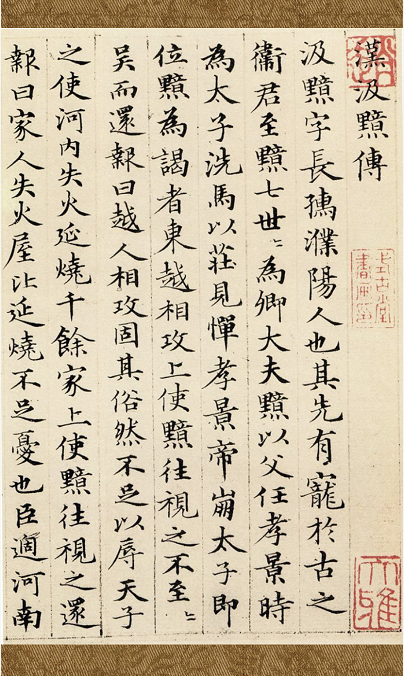 漢汲黯傳
汲黯字長孺濮陽人也其先有寵於古之
衛君至黯七世〻為卿大夫黯以父任孝景時
為太子洗馬以莊見憚孝景帝崩太子即
位黯為謁者東越相攻上使黯往視之不至〻
吳而還報曰越人相攻固其俗然不足以辱天子
之使河内失火延燒千餘家上使黯往視之還
報曰家人失火屋比延燒不足憂也臣適河南
大雅